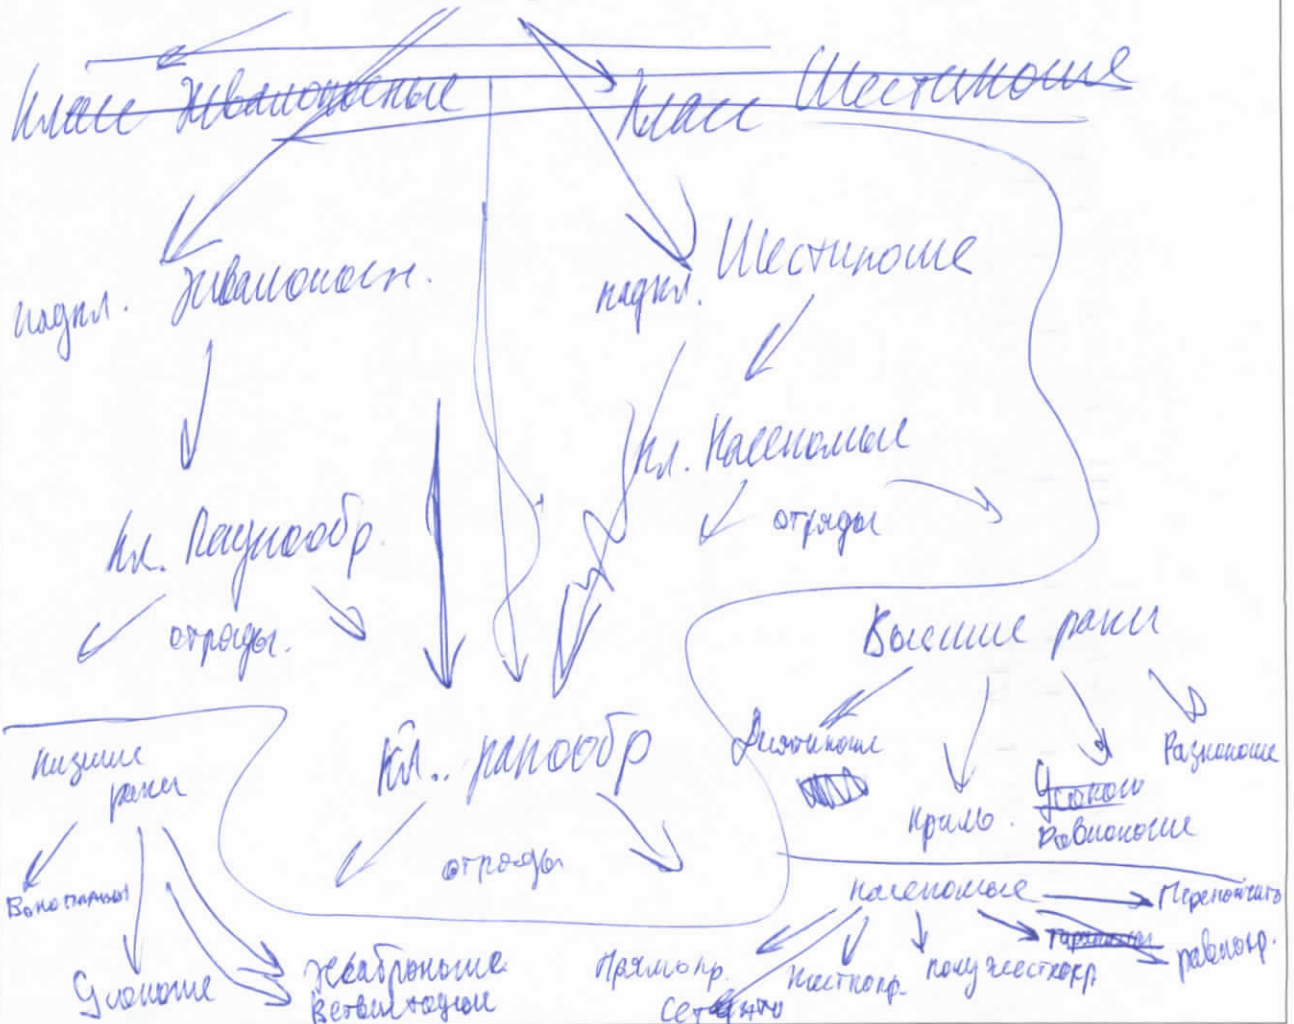 Класс Жвалоносные
Класс Шестиногие
надкл. Жвалоносн.
надкл. Шестиногие
Кл. Насекомые
отряды
Кл. Паукообр.
отряды.
Высшие раки
Кл.. ракообр
отряды
Низшие
раки
Десятиногие
криль.
Усоног
Равноногие
Разноногие
Веслоногие
Усоногие
Жаброногие
Ветвистоусые
насекомые
Перепончато
равнокр.
Прямокр.
Жесткокр.
полужесткокр.